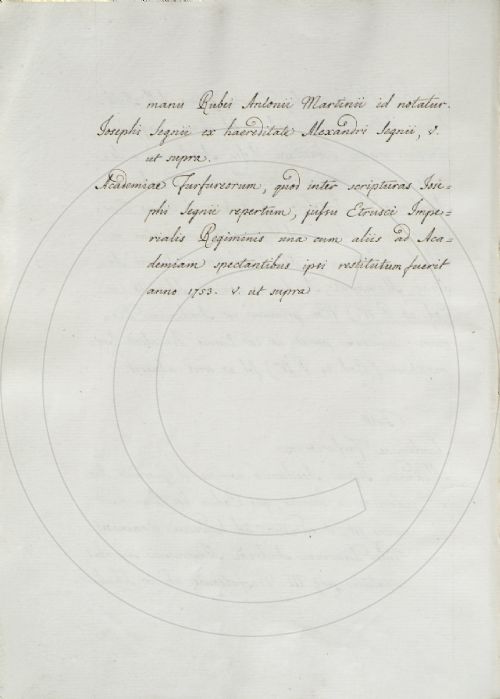 manu Rubei Antonii Martinii id notatur.
Josephi Segnii ex haereditate Alexandri Segnii, v.
ut supra.
Academiae Furfureorum, quod inter scripturas Jose-
phi Segnii repertum, jussu Etrusci Impe-
rialis Regiminis una cum aliis ad Aca-
demiam spectantibus ipsi restitutum fuerit
anno 1753. v. ut supra